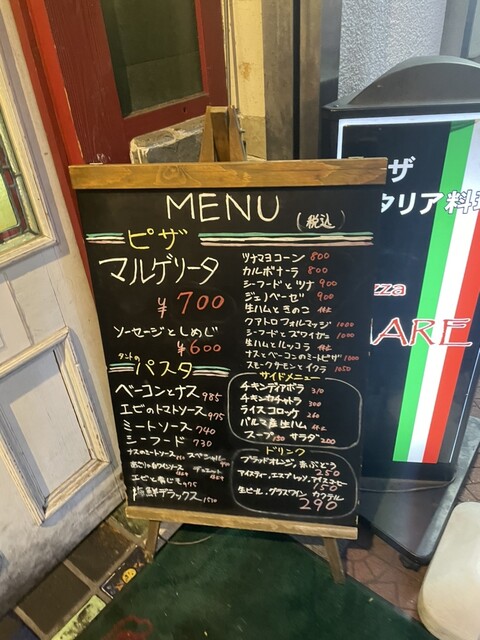 MENU
(税込)
ピザ
マルゲリータ
¥700
ソーセージとしめじ
¥600
ツナマヨコーン 800
カルボナーラ 800
シーフードとツナ 900
ジェノベーゼ 900
生ハムときのこ
クアトロフォルマッジ 1000
シーフードとズワイガニ 1000
生ハムとルッコラ
ナスとベーコンのミートピザ 1000
スモークサーモンとイクラ 1050
パスタ
ベーコンとナス 985
エビのトマトソース 975
ミートソース 740
シーフード 730
ナスのミートソース
エビと青じそ 975
海鮮デラックス
サイドメニュー
チキンディアボラ
チキンカチャトラ 300
ライスコロッケ 260
パルマ産生ハム
スープ 150 サラダ 200
ドリンク
ブラッドオレンジ, 赤ぶどう
250
アイスティー, エスプレッソ, アイスコーヒー
150
生ビール, グラスワイン カクテル
290
ザ
タリア料理
zza
ARE